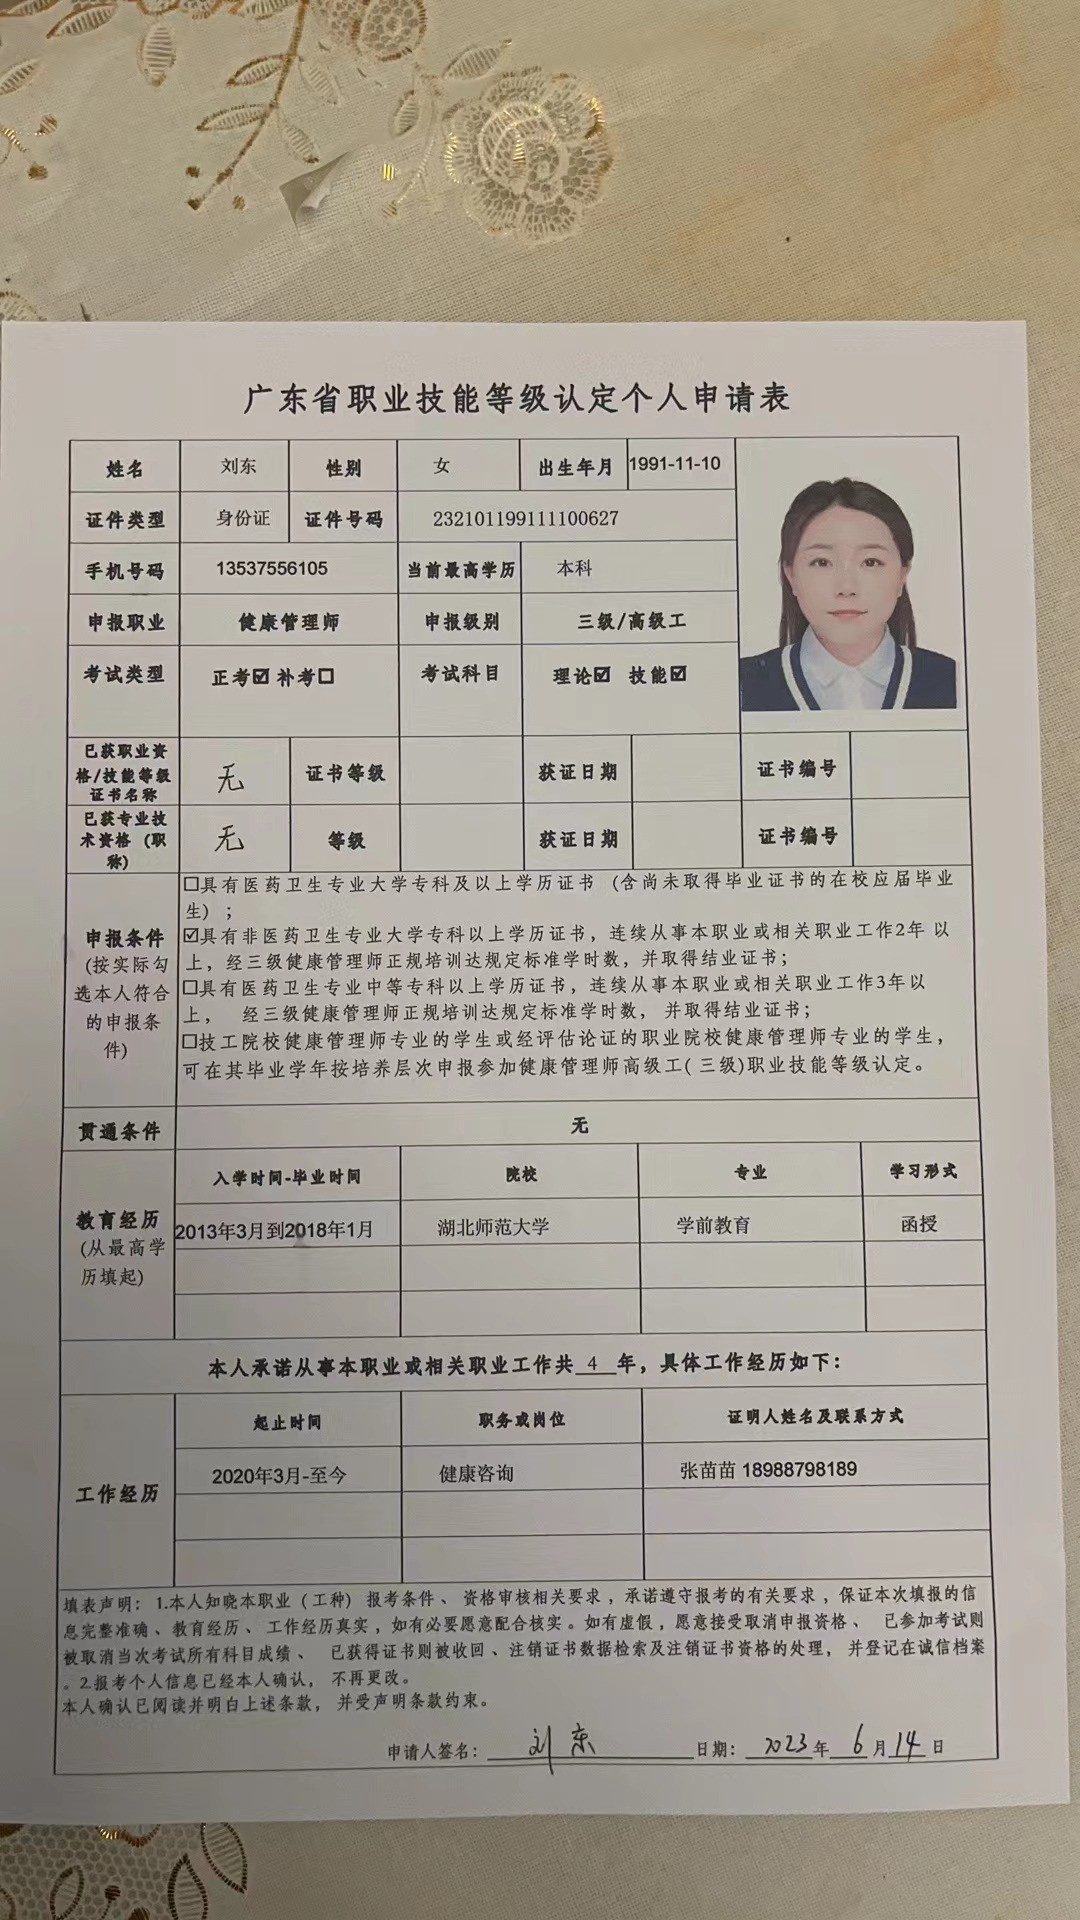 广东省职业技能等级认定个人申请表
姓名 刘东 性别 女 出生年月 1991-11-10
证件类型 身份证 证件号码 232101199111100627
手机号码 13537556105 当前最高学历 本科
申报职业 健康管理师 申报级别 三级/高级工
考试类型 正考☑补考☐ 考试科目 理论☑ 技能☑
已获职业资
格/技能等级
证书名称
无 证书等级 获证日期 证书编号
已获专业技
术资格（职
称)
无 等级 获证日期 证书编号
申报条件
(按实际勾
选本人符合
的申报条
件)
☐具有医药卫生专业大学专科及以上学历证书（含尚未取得毕业证书的在校应届毕业
生）；
☑具有非医药卫生专业大学专科以上学历证书，连续从事本职业或相关职业工作2年 以
上，经三级健康管理师正规培训达规定标准学时数，并取得结业证书；
☐具有医药卫生专业中等专科以上学历证书，连续从事本职业或相关职业工作3年以
上， 经三级健康管理师正规培训达规定标准学时数， 并取得结业证书；
☐技工院校健康管理师专业的学生或经评估论证的职业院校健康管理师专业的学生，
可在其毕业学年按培养层次申报参加健康管理师高级工( 三级)职业技能等级认定。
贯通条件 无
教育经历
(从最高学
历填起)
入学时间-毕业时间 院校 专业 学习形式
2013年3月到2018年1月 湖北师范大学 学前教育 函授
本人承诺从事本职业或相关职业工作共 4 年，具体工作经历如下：
工作经历
起止时间 职务或岗位 证明人姓名及联系方式
2020年3月-至今 健康咨询 张苗苗 18988798189
填表声明： 1.本人知晓本职业（工种） 报考条件、 资格审核相关要求，承诺遵守报考的有关要求，保证本次填报的信
息完整准确、教育经历、 工作经历真实，如有必要愿意配合核实。如有虚假，愿意接受取消申报资格、 已参加考试则
被取消当次考试所有科目成绩、 已获得证书则被收回、注销证书数据检索及注销证书资格的处理， 并登记在诚信档案
。2.报考个人信息已经本人确认， 不再更改。
本人确认已阅读并明白上述条款， 并受声明条款约束。
申请人签名： 刘东 日期： 2023 年 6 月 14 日